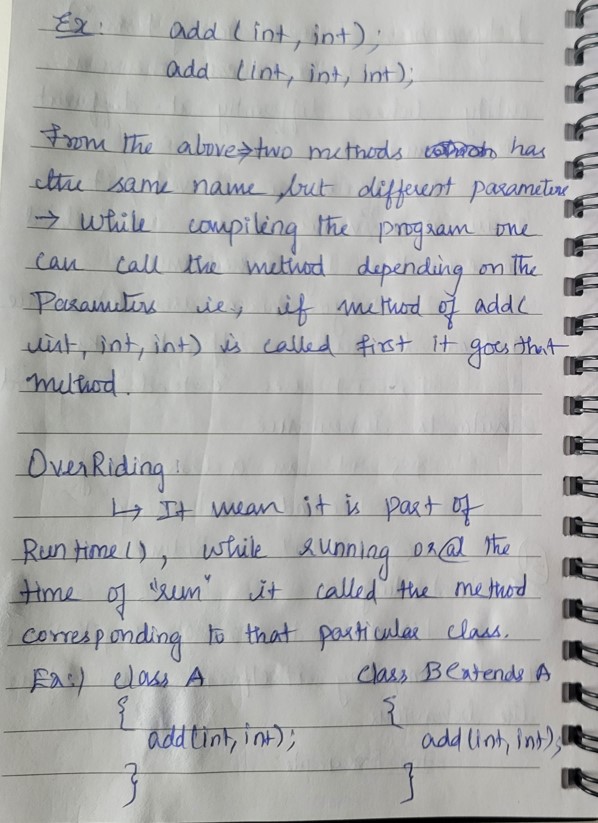 Ex: add (int, int);
add (int, int, int);
From the above→two methods has
the same name, but different parameters
→ While compiling the program one
can call the method depending on the
Parameters ie., if method of add(
int, int, int) is called first it goes that
method.
OverRiding:
↳ It mean it is part of
Runtime(), while running or@ the
time of "run" it called the method
corresponding to that particular class.
Ex:) class A class B extends A
{ {
add(int, int); add(int, int);
} }